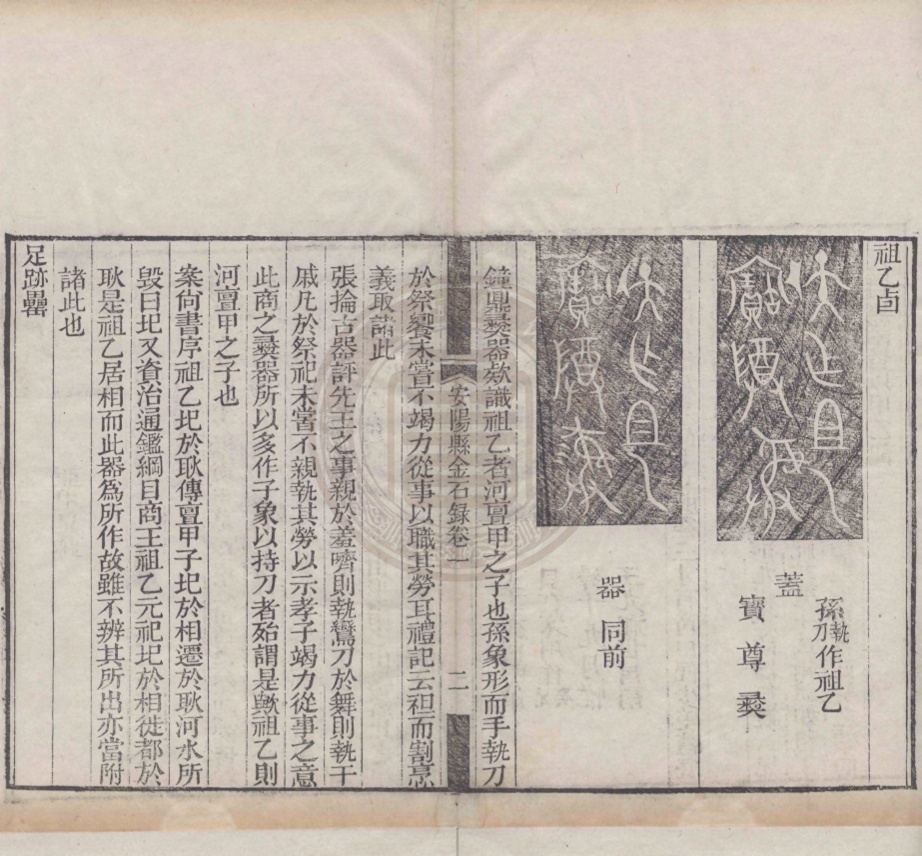 祖乙卣
蓋
孫執刀作祖乙
寶尊彝
器 同前
鐘鼎彝器欵識祖乙者河亶甲之子也孫象形而手執刀
安陽縣金石録卷一
二
於祭饗未嘗不竭力從事以職其勞耳禮記云袒而割烹
義取諸此
張掄古器評先王之事親於羞嚌則執鸞刀於舞則執干
戚凡於祭祀未嘗不親執其勞以示孝子竭力從事之意
此商之彝器所以多作子象以持刀者殆謂是歟祖乙則
河亶甲之子也
案尙書序祖乙圯於耿傳亶甲子圯於相遷於耿河水所
毀曰圯又資治通鑑綱目商王祖乙元祀圯於相徙都於
耿是祖乙居相而此器爲所作故雖不辨其所出亦當附
諸此也
足跡罍